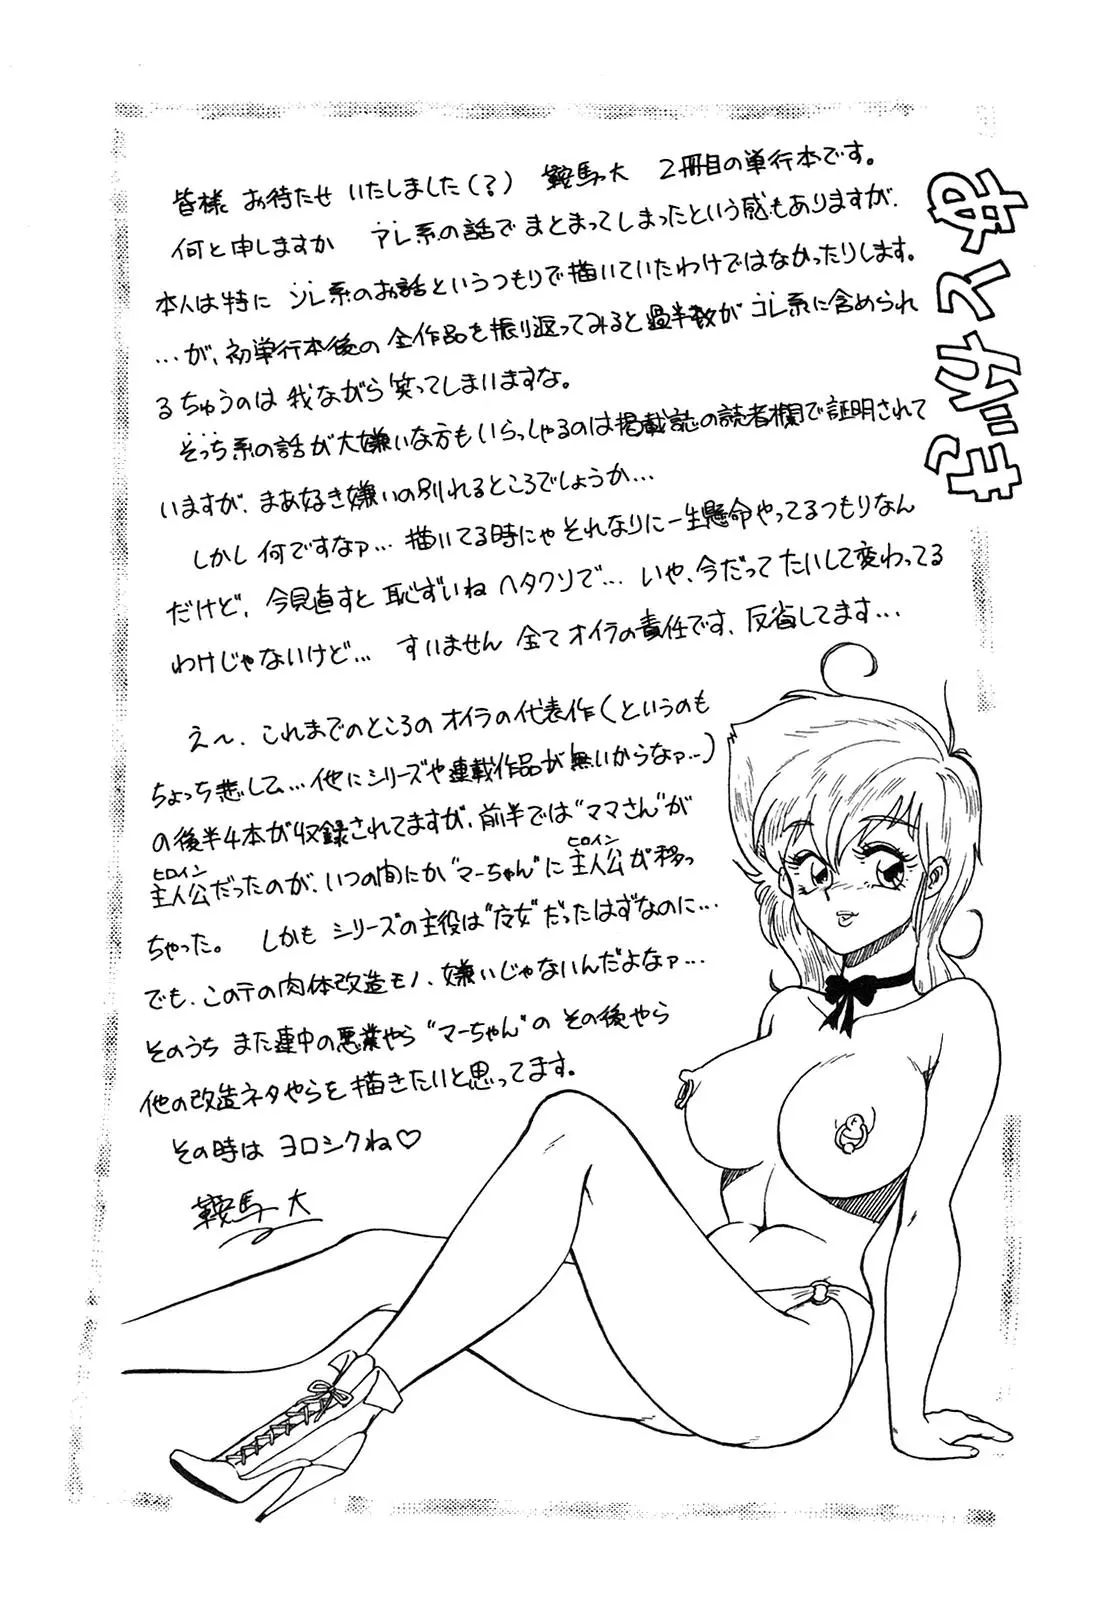 皆様 お待たせ いたしました(?) 鞍馬大 2冊目の単行本です。
何と申しますか アレ系の話で まとまってしまったという感もありますが、
本人は特に ソレ系のお話というつもりで描いていたわけではなかったりします。
…が、初単行本後の 全作品を振り返ってみると過半数が コレ系に含められ
るちゅうのは 我ながら 笑ってしまいますな。
そっち系の話が大嫌いな方もいらっしゃるのは掲載誌の読者欄で証明されて
いますが、まあ好き嫌いの別れるところでしょうか…
しかし 何ですなァ… 描いてる時にゃ それなりに一生懸命やってるつもりなん
だけど、今見直すと 恥ずいね ヘタクソで… いや、今だって たいして変わってる
わけじゃないけど… すいません 全て オイラの責任です、反省してます…
え〜、これまでのところの オイラの代表作(というのも
ちょっち悲しい…他にシリーズや連載作品が無いからなァ…)
の後半4本が収録されてますが、前半では“ママさん”が
ヒロイン ヒロイン
主人公だったのが、いつの間にか“マーちゃん”に 主人公が移っ
ちゃった。 しかも シリーズの主役は だったはずなのに…
でも、このテの肉体改造モノ、嫌いじゃないんだよなァ…
そのうち また連中の悪業やら “マーちゃん”の その後やら
他の改造ネタやらを 描きたいと思ってます。
その時は ヨロシクね♡
鞍馬 大